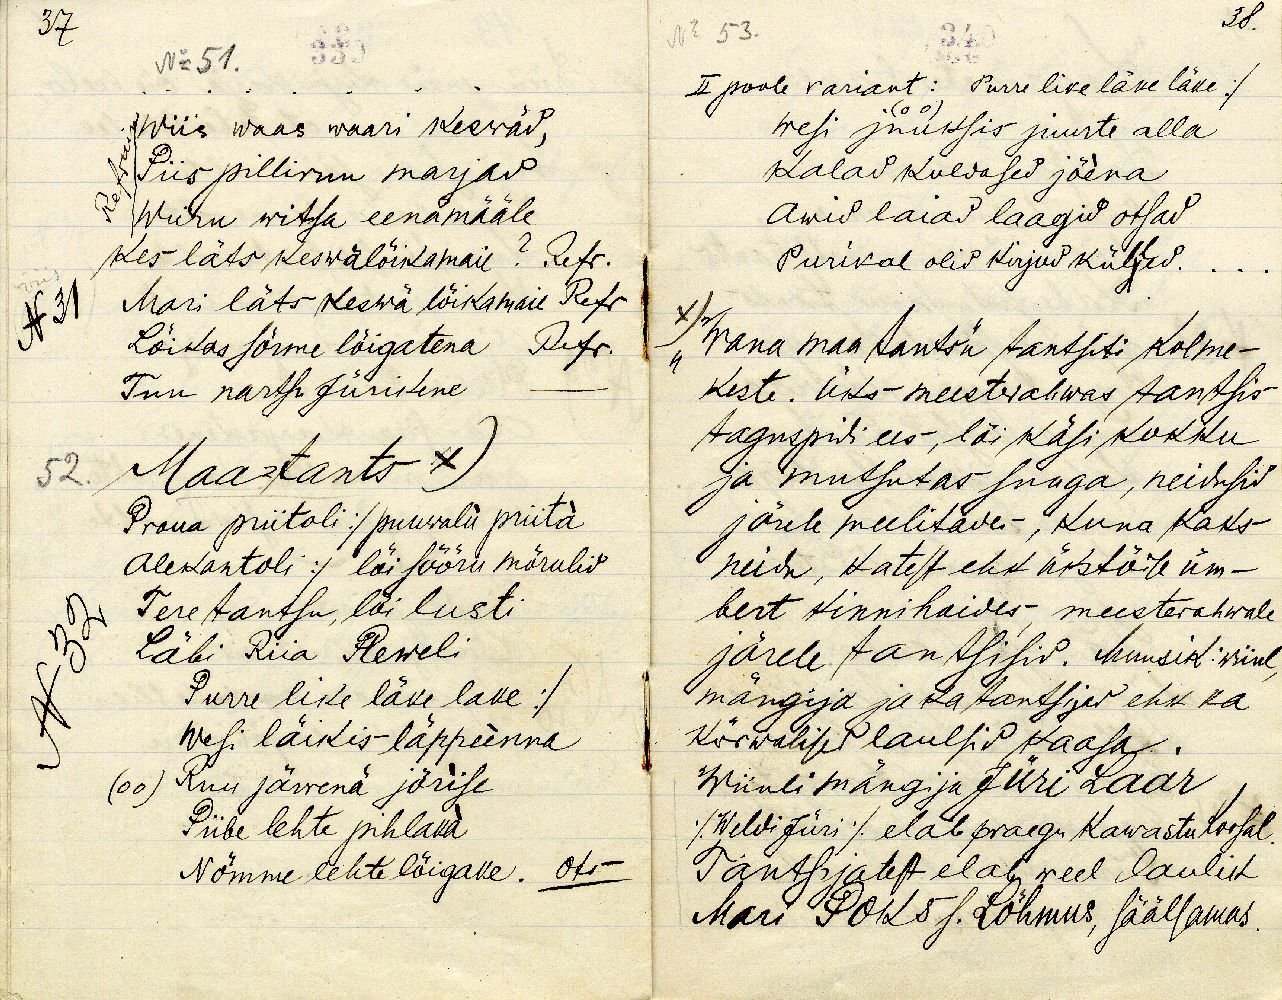 37
№ 51.
Refrain
Wiis waas waari keswäd,
Piis pilliruu marjad
Wiiru witsa eenämääle
Kes läts keswälõikamaie? Refr.
№ 31
Mari läts keswä lõikamaie Refr
Lõikas sõrme lõigatena Refr.
Tuu nartsu Jürikene —
52. Maa-tants x)
Proua priitoli :/ puuwalù priità
Alekantoli :/ lõi sööru mõrulid
Tere tantsu, lõi lusti
Läbi Riia Reweli
№ 32
Purre like läke lake :/
Wesi läikis läppeènna
(oo) Ruu järwenä jõrise
Piibe lehte pihlakà
Nõmme lehte lõigake. Ots
№ 53.
38.
II poole variant: Purre like läke läke :/
(oo)
Wesi juuksis juurte alla
Kalad kuldased jõèna
Awid laiad laagid otsad
Purikal olid kirjud küljed. . . .
x) "Wana maa tantsu" tantsiti kolme-
keste. Üks meesterahwas tantsis
taguspidi ees, lõi käsi kokku
ja mutsutas suuga, neidusid
järele meelitades, kuna kaks
neidu, katest ehk üksteise üm-
bert kinnihoides, meesterahwale
järele tantsisid. Muusik: wiiul,
mängija ja ka tantsijad ehk ka
kõrwalised laulsid kaasa.
Wiiuli mängija Jüri Laar
:/. Weldi Jüri :/. elab praegu Kawastu koosal.
Tantsijatest elab weel laulik
Mari Poks s. Lõhmus, säälsamas.